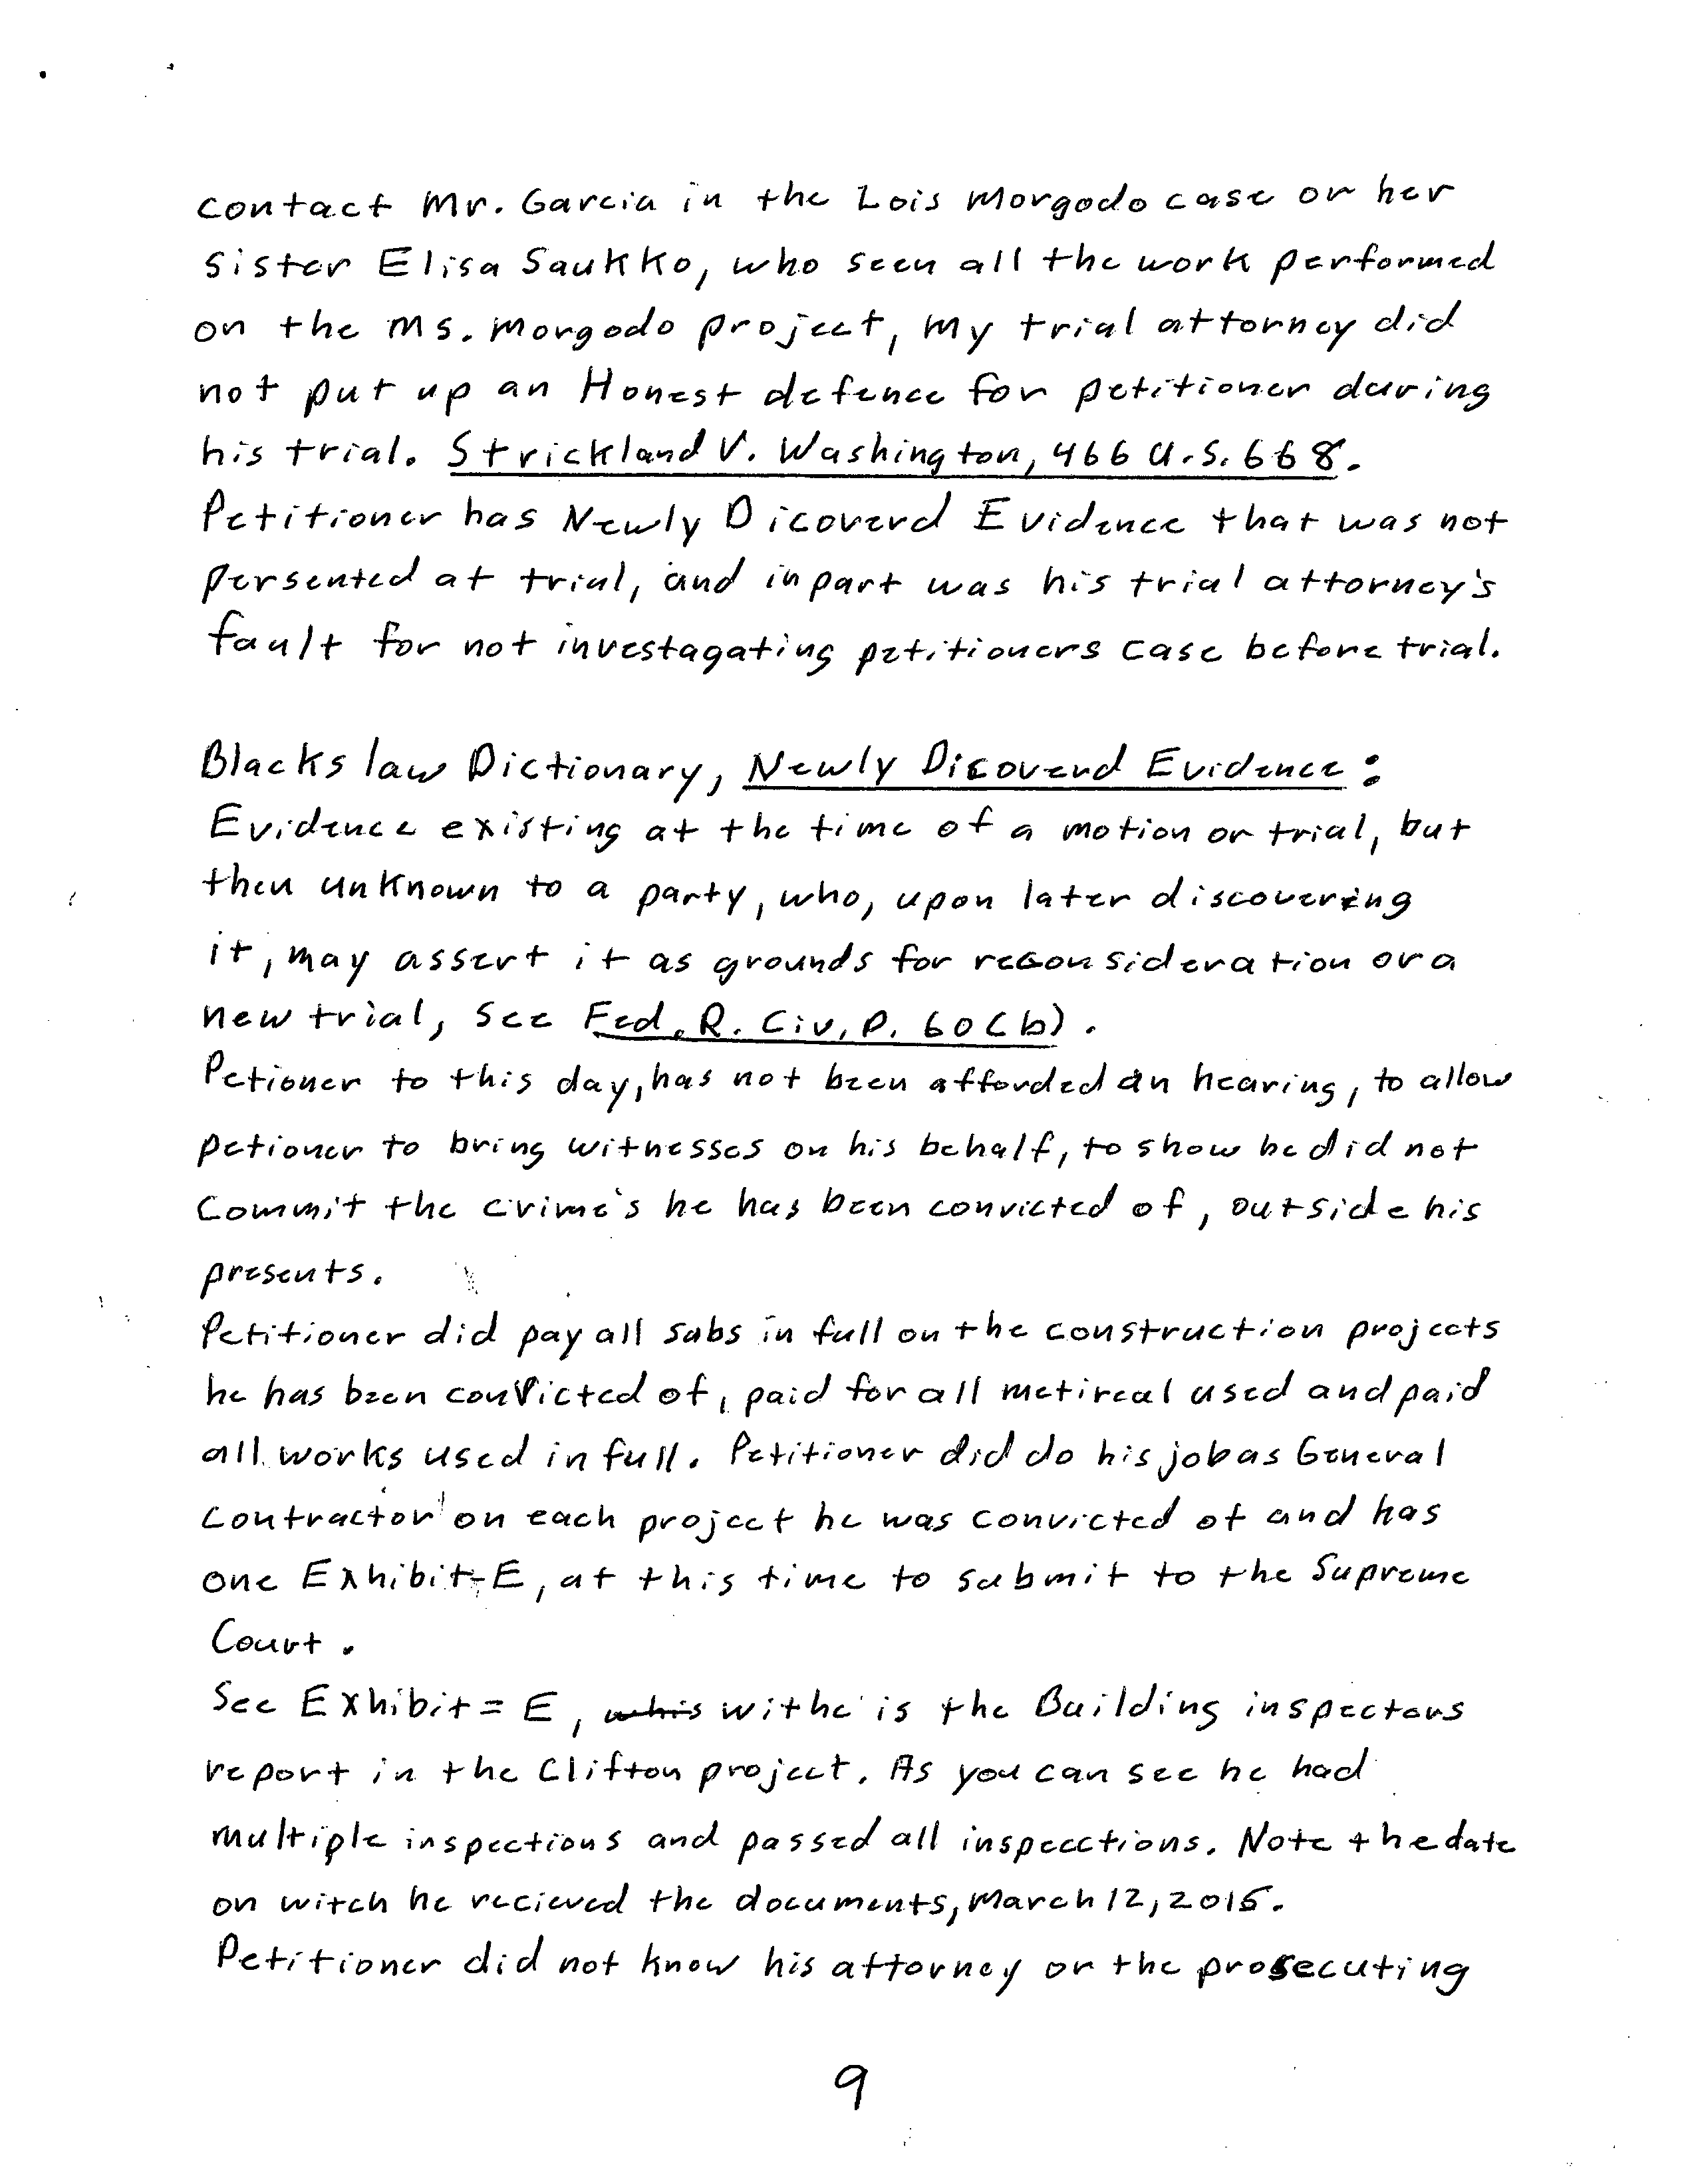 contact Mr. Garcia in the Lois Morgodo case or her
sister Elisa Saukko, who seen all the work performed
on the Ms. Morgodo project, My trial attorney did
not put up an Honest defence for petitioner during
his trial. Strickland V. Washington, 466 U.S. 668.
Petitioner has Newly Dicoverd Evidence that was not
persented at trial, and in part was his trial attorney's
fault for not investagating petitioners case before trial.
Blacks law Dictionary, Newly Dicoverd Evidence:
Evidence existing at the time of a motion or trial, but
then unknown to a party, who, upon later discovering
it, may assert it as grounds for reconsideration or a
new trial, See Fed. R. Civ. P. 60(b).
Petioner to this day, has not been afforded an hearing, to allow
petioner to bring witnesses on his behalf, to show he did not
Commit the crime's he has been convicted of, outside his
presents.
Petitioner did pay all subs in full on the construction projects
he has been convicted of, paid for all metireal used and paid
all works used in full. Petitioner did do his job as General
Contractor on each project he was convicted of and has
one Exhibit-E, at this time to submit to the Supreme
Court.
See Exhibit = E, whis withc is the Building inspectors
report in the Clifton project. As you can see he had
multiple inspections and passed all inspecctions. Note the date
on witch he recieved the documents, March 12, 2015.
Petitioner did not know his attorney or the prosecuting
9